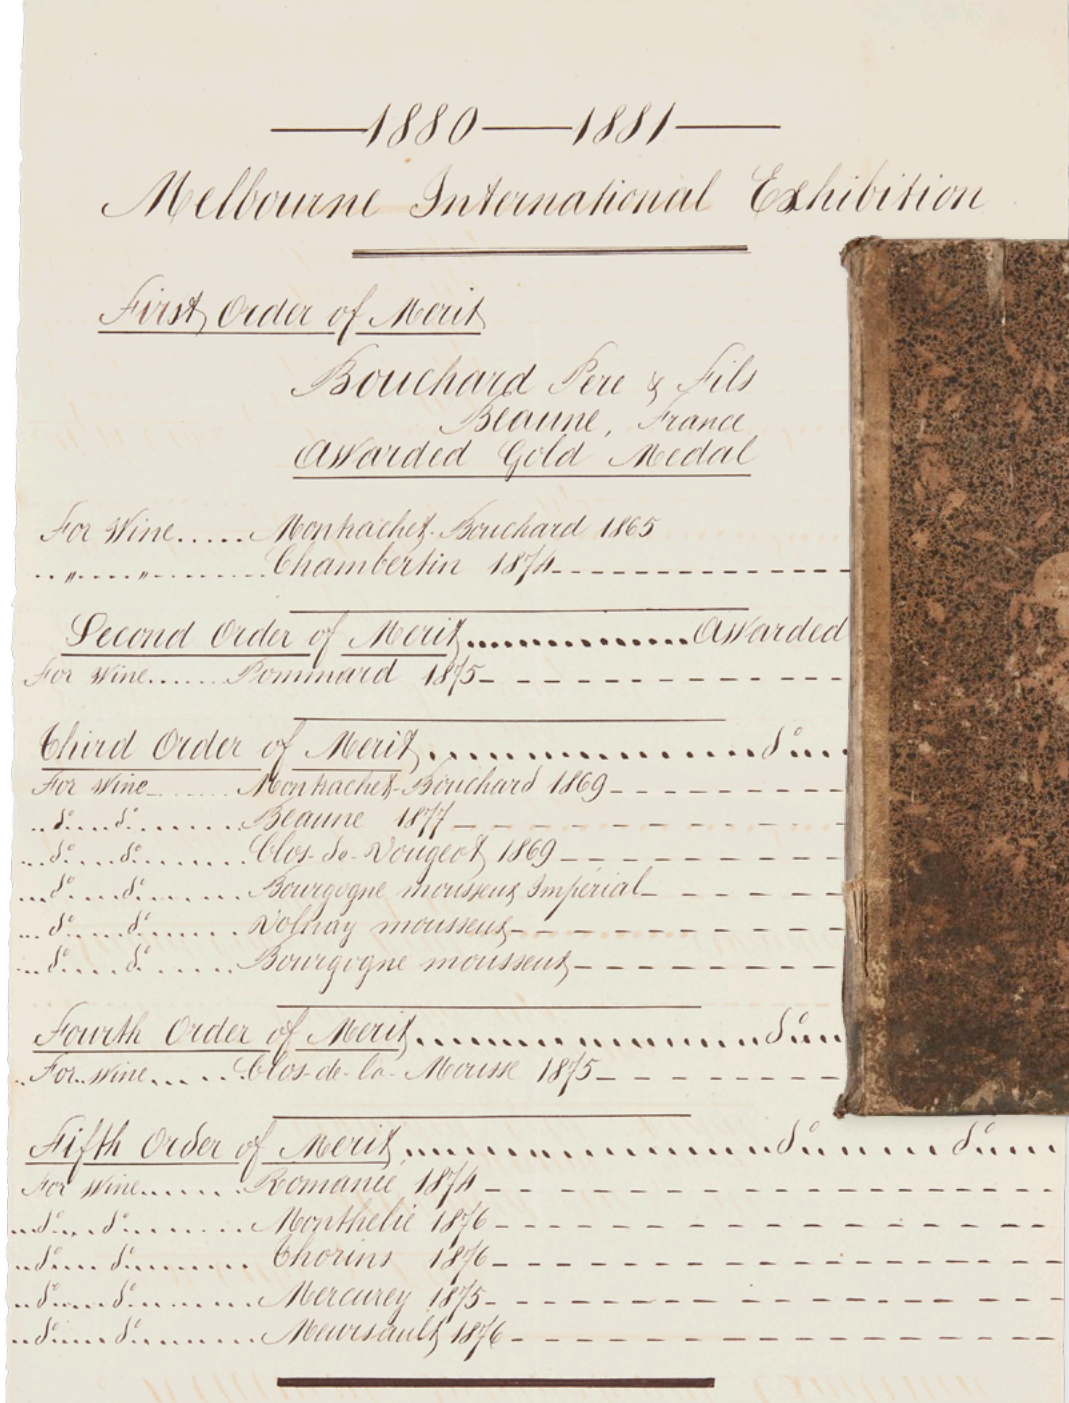 1880 — 1881
Melbourne International Exhibition
First Order of Merit
Bouchard Pere & Fils
Beaune, France
Awarded Gold Medal
For Wine..... Montrachet-Bouchard 1865
.. " .... " ........ Chambertin 1874
Second Order of Merit.............. Awarded
For Wine...... Pommard 1875
Third Order of Merit.............. do...
For Wine...... Montrachet-Bouchard 1869
.. do.... do....... Beaune 1877
... do.... do....... Clos-de-Vougeot 1869
... do.... do....... Bourgogne mousseux Impérial
... do.... do....... Volnay mousseux
... do.... do....... Bourgogne mousseux
Fourth Order of Merit.............. do...
..For..wine..... Clos-de-la-Mousse 1875
Fifth Order of Merit.............. do...... do....
For Wine...... Romanée 1874
.. do... do....... Monthelie 1876
.. do.... do....... Chorins 1876
.. do.... do....... Mercurey 1875
.. do.... do....... Meursault 1876